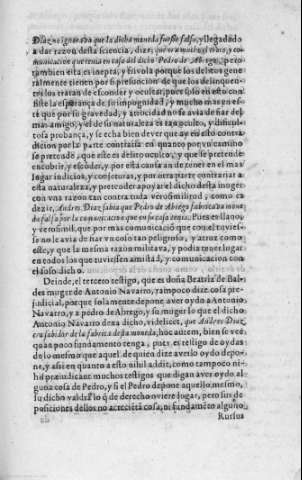 Diaz no ignoraba que la dicha moneda fuesse falsa, y llegãdolo
a dar razon desta sciencia, dize; que era mucho el trato, y co-
municacion que tenia en casa del dicho Pedro de Abrego, pero
tambien esta es inepta, y frivola porque los delitos gene-
ralmente tienen por si presunciõ de que los delinquen-
tes tratan de esconder y ocultar, pues solo en esto con-
siste la esperança de su impugnidad, y mucho mas en es-
te que por su gravedad, y atrocidad no se avia de fiar del
mas amigo, y el de su naturaleza es tan oculto, y difi-
tosa probança, y se echa bien de ver que ay en esto contra-
dicion por la parte contraria en quanto por vn camino
se pretende, que este es delito oculto, y que se pretende
encubrir, y esconder, y por esta causa an de tener en el mas
lugar indicios, y conjeturas, y por otra parte contrariar a
esta naturaleza, y pretender apoyar el dicho desta muger
con vna razon tan contra toda verosimilitud, como es
dezir, Andres Diaz sabia que Pedro de Abrego fabricaba mone
da falsa por la comunicacion que en su casa tenia. Pues es llano,
y verosimil, que por mas comunicaciõ que con el tuvies-
se no le avia de fiar vn caso tan peligroso, y atroz como
este, y que la mesma razon militava, y podia tener lugar
en todos los que tuviessen amistad, y comunicacion con
el suso dicho.
Deinde, el tercero testigo, que es doña Beatriz de Bal-
des muger de Antonio Navarro, tampoco dize cosa pre-
judicial, porque solamente depone aver oydo a Antonio
Navarro, y a Pedro de Abrego, y su muger lo que el dicho
Antonio Navarro dexa dicho, videlicet, que Andres Diaz,
era sabidor de la fabrica desta moneda, hoc autem, bien se vee
quan poco fundamento tenga, pues es testigo de oydas
de lo mesmo que aquel de quien dize averlo oydo depo-
ne, y assi en quanto a esto nihil addit, como tampoco ni-
hil præiudicant muchos testigos que digan aver oydo al-
guna cosa de Pedro, y si el Pedro depone aquello mesmo,
su dicho valdrà lo q̃ de derecho oviere lugar, pero sus de-
posiciones dellos no acrecẽtã cosa, ni fundamẽto alguno.
Rursus